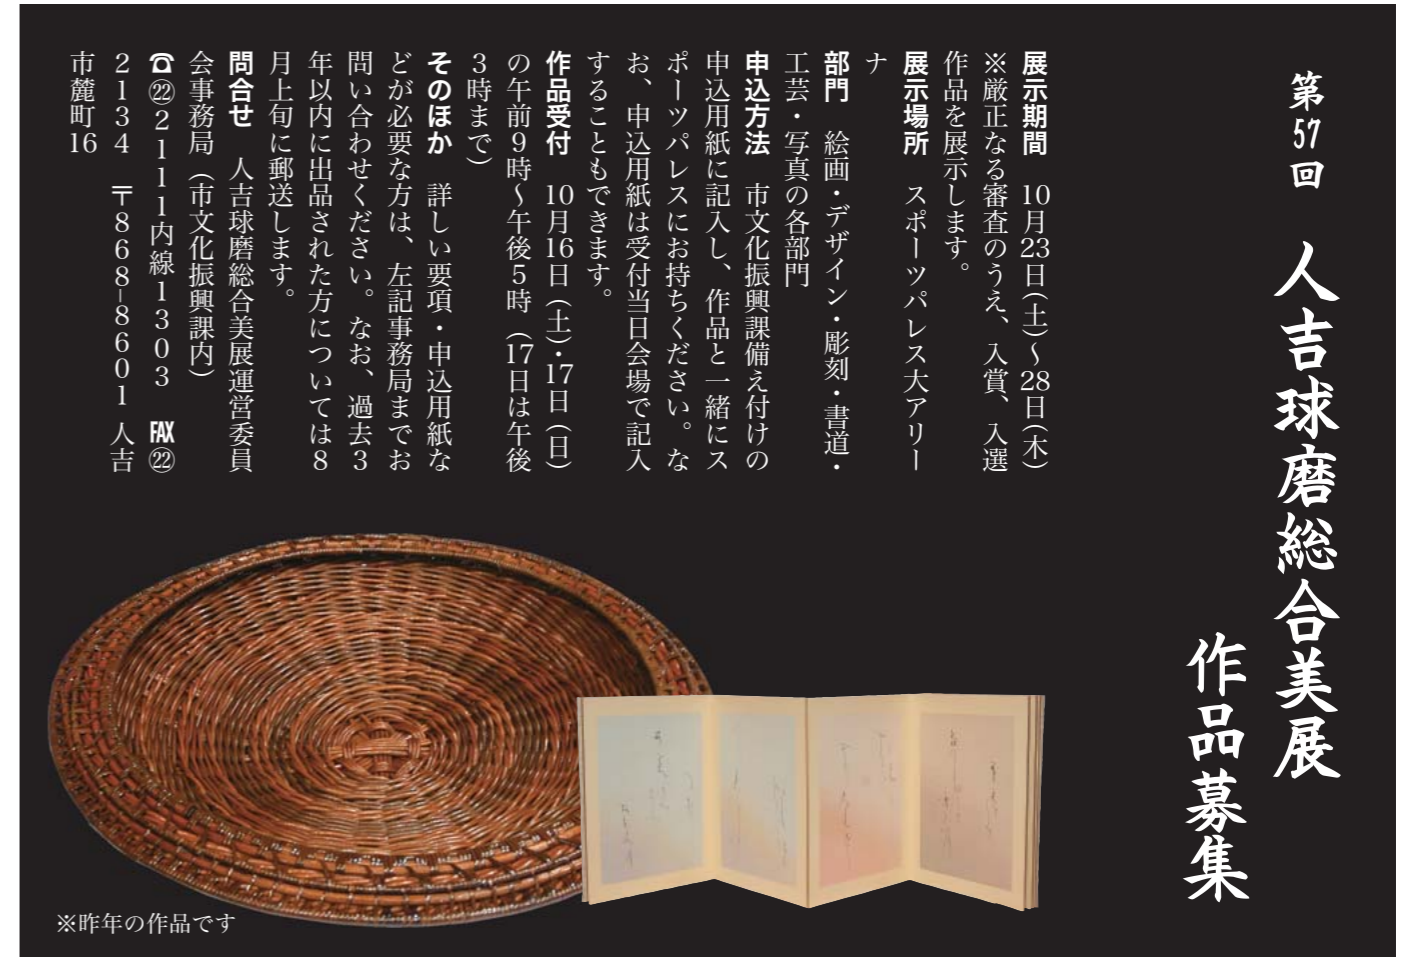 第57回 人吉球磨総合美展
作品募集
展示期間 10月23日(土)～28日(木)
※厳正なる審査のうえ、入賞、入選
作品を展示します。
展示場所 スポーツパレス大アリー
ナ
部門 絵画・デザイン・彫刻・書道・
工芸・写真の各部門
申込方法 市文化振興課備え付けの
申込用紙に記入し、作品と一緒にス
ポーツパレスにお持ちください。な
お、申込用紙は受付当日会場で記入
することもできます。
作品受付 10月16日(土)・17日(日)
の午前9時～午後5時(17日は午後
3時まで)
そのほか 詳しい要項・申込用紙な
どが必要な方は、左記事務局までお
問い合わせください。なお、過去3
年以内に出品された方については8
月上旬に郵送します。
問合せ 人吉球磨総合美展運営委員
会事務局(市文化振興課内)
☎㉒2111内線1303 FAX㉒
2134 〒868-8601人吉
市麓町16
※昨年の作品です